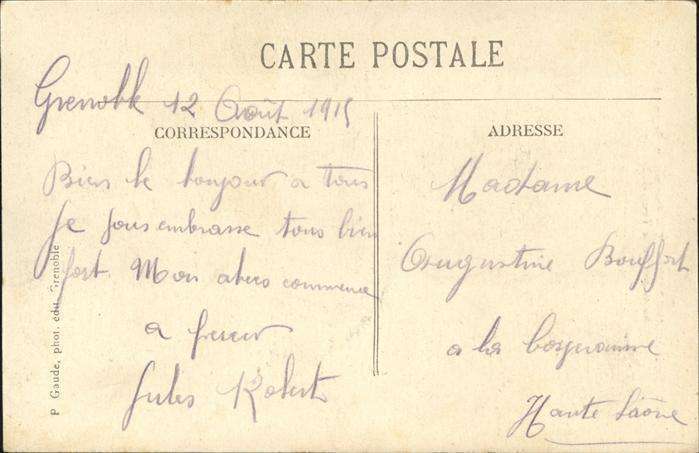 CARTE POSTALE
Grenoble 12 Août 1915
CORRESPONDANCE
Bien le bonjour a tous
Je vous embrasse tous bien
fort. Mon abces commence
a percer
Jules Robert
ADRESSE
Madame
Augustine Bouffort
a la
Haute Saône
P Gaude, phot. édit. Grenoble